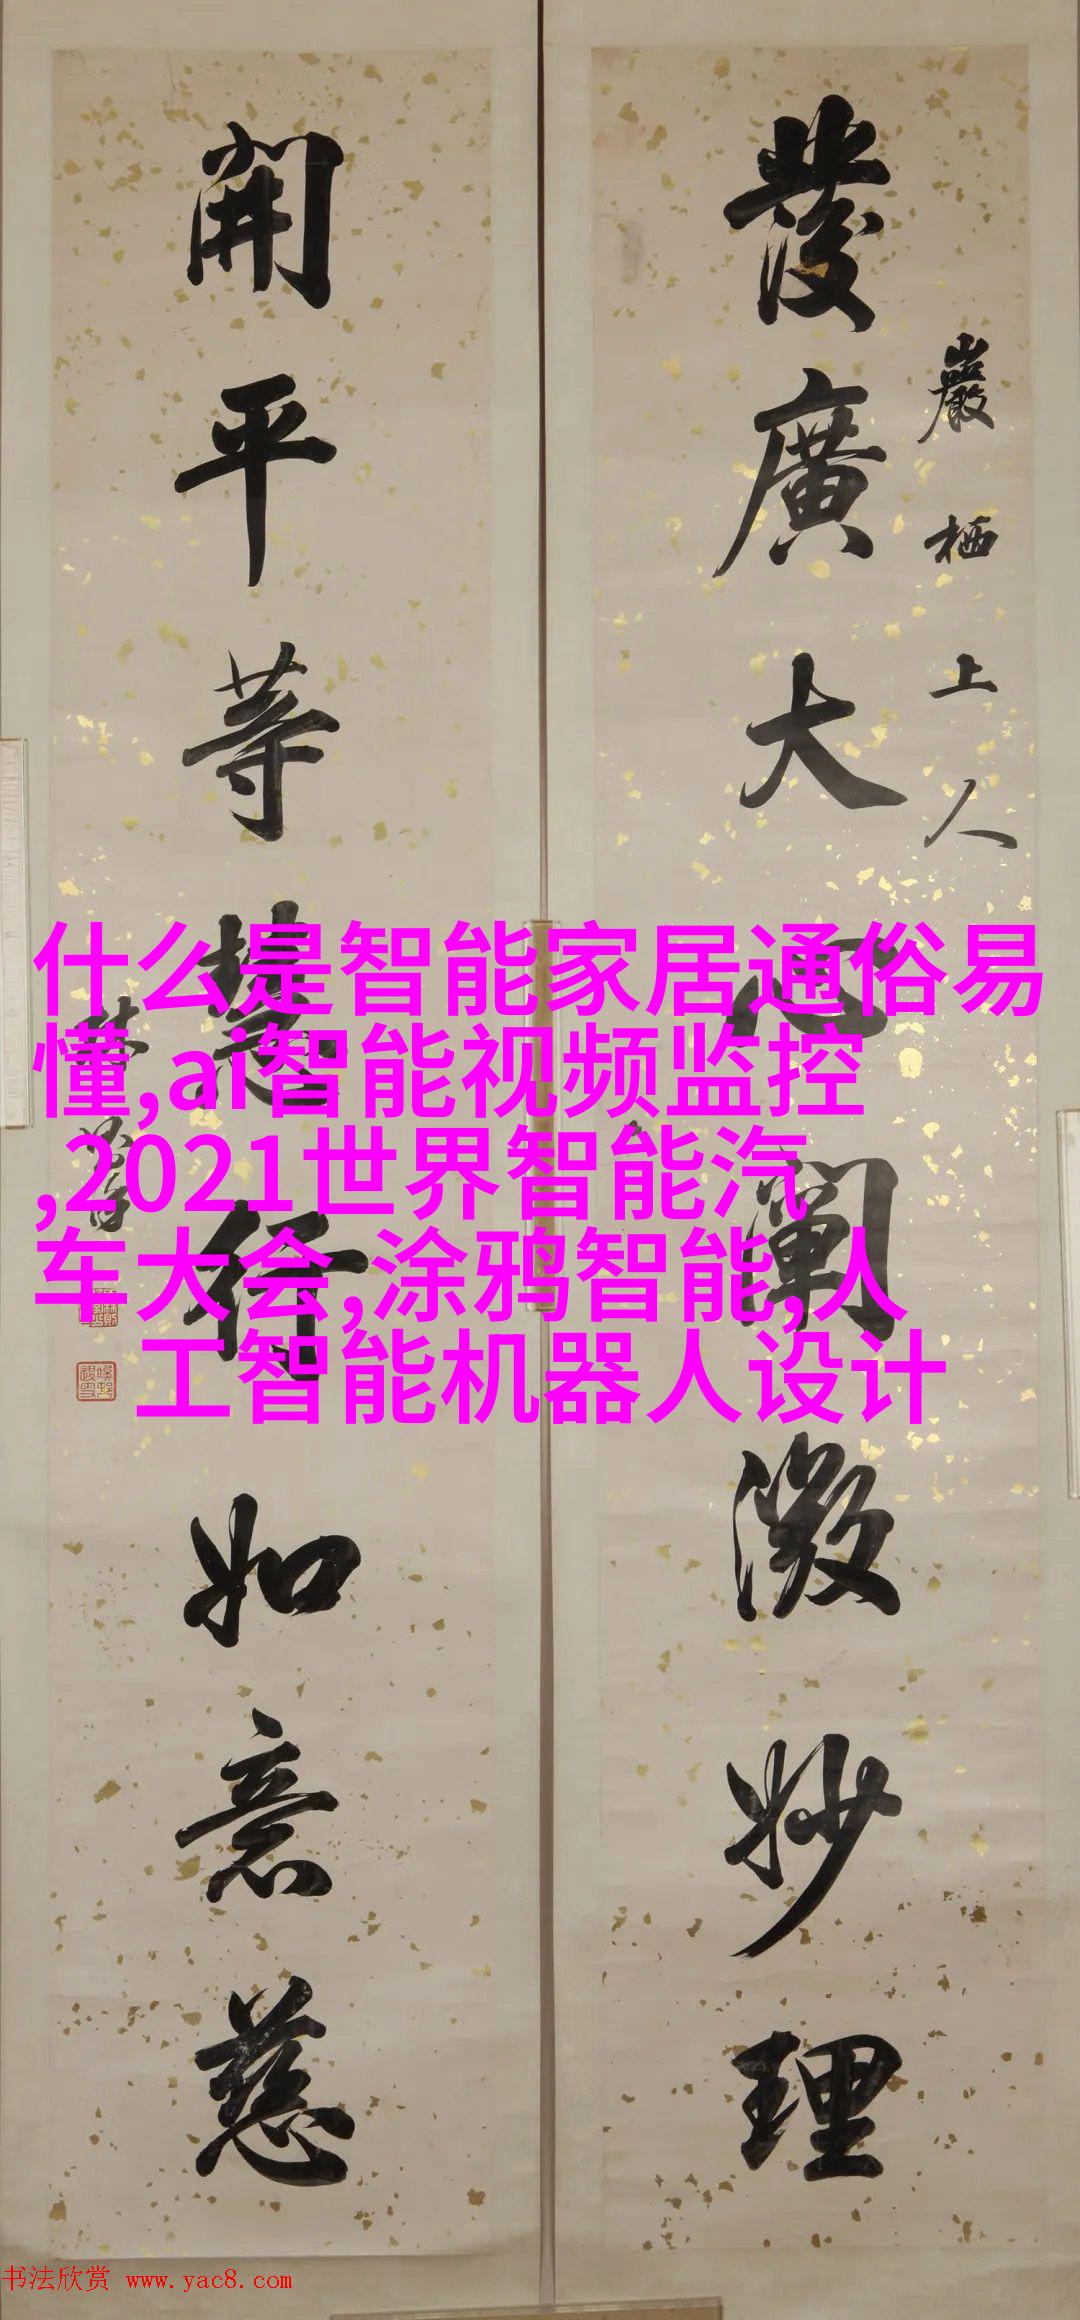 巖栖上人
發廣大心闡微妙理
開平等慧行如意慈
什么是智能家居通俗易
懂,ai智能视频监控
,2021世界智能汽
车大会,涂鸦智能,人
工智能机器人设计
书法欣赏 www.yac8.com